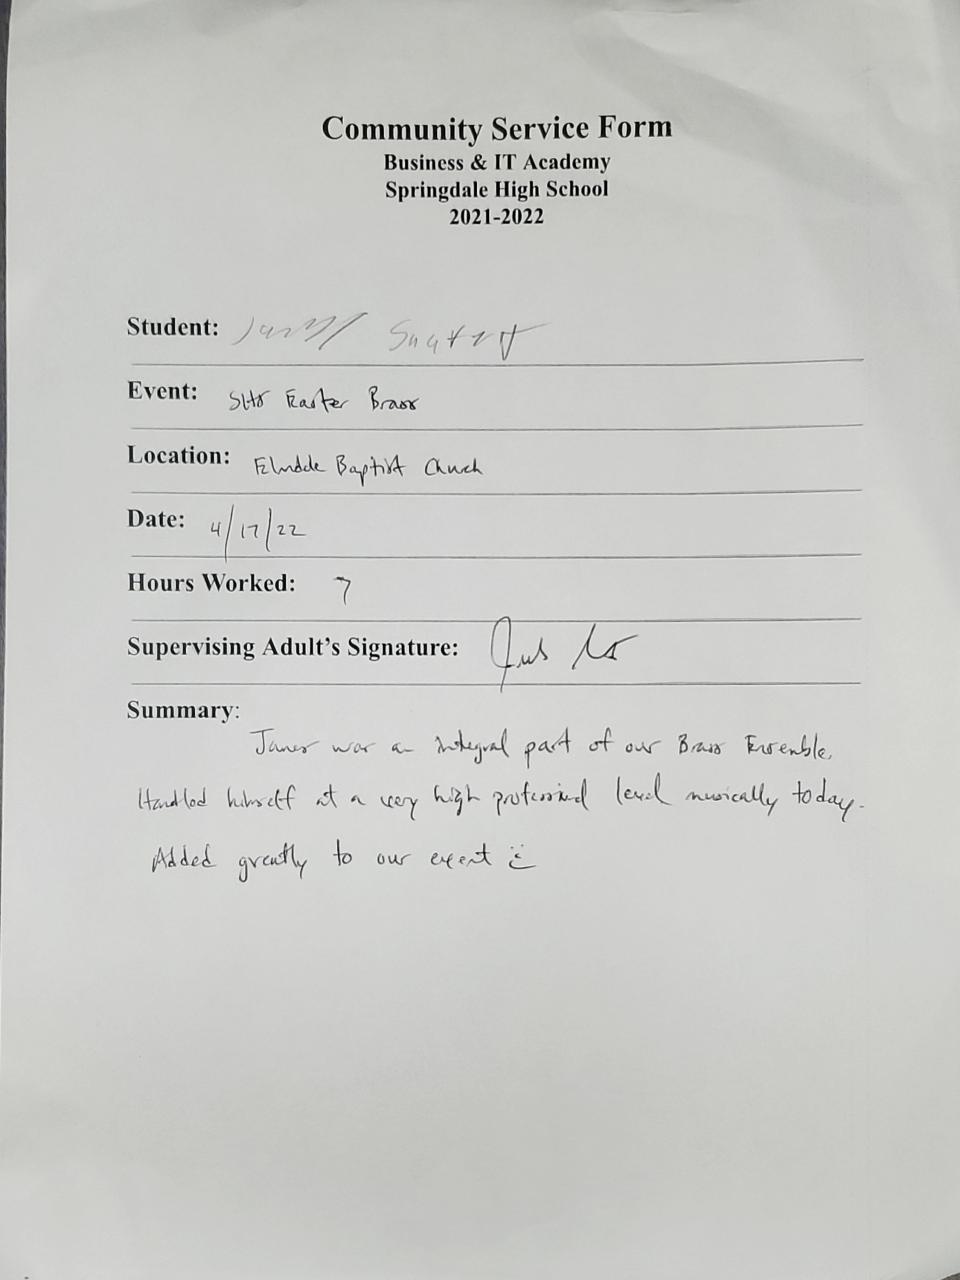 Community Service Form
Business & IT Academy
Springdale High School
2021-2022
Student:
Event: SHS Easter Brass
Location: Elmdale Baptist Church
Date: 4/17/22
Hours Worked: 7
Supervising Adult's Signature:
Summary:
James was an integral part of our Brass Ensemble.
Handled himself at a very high professional level musically today.
Added greatly to our event